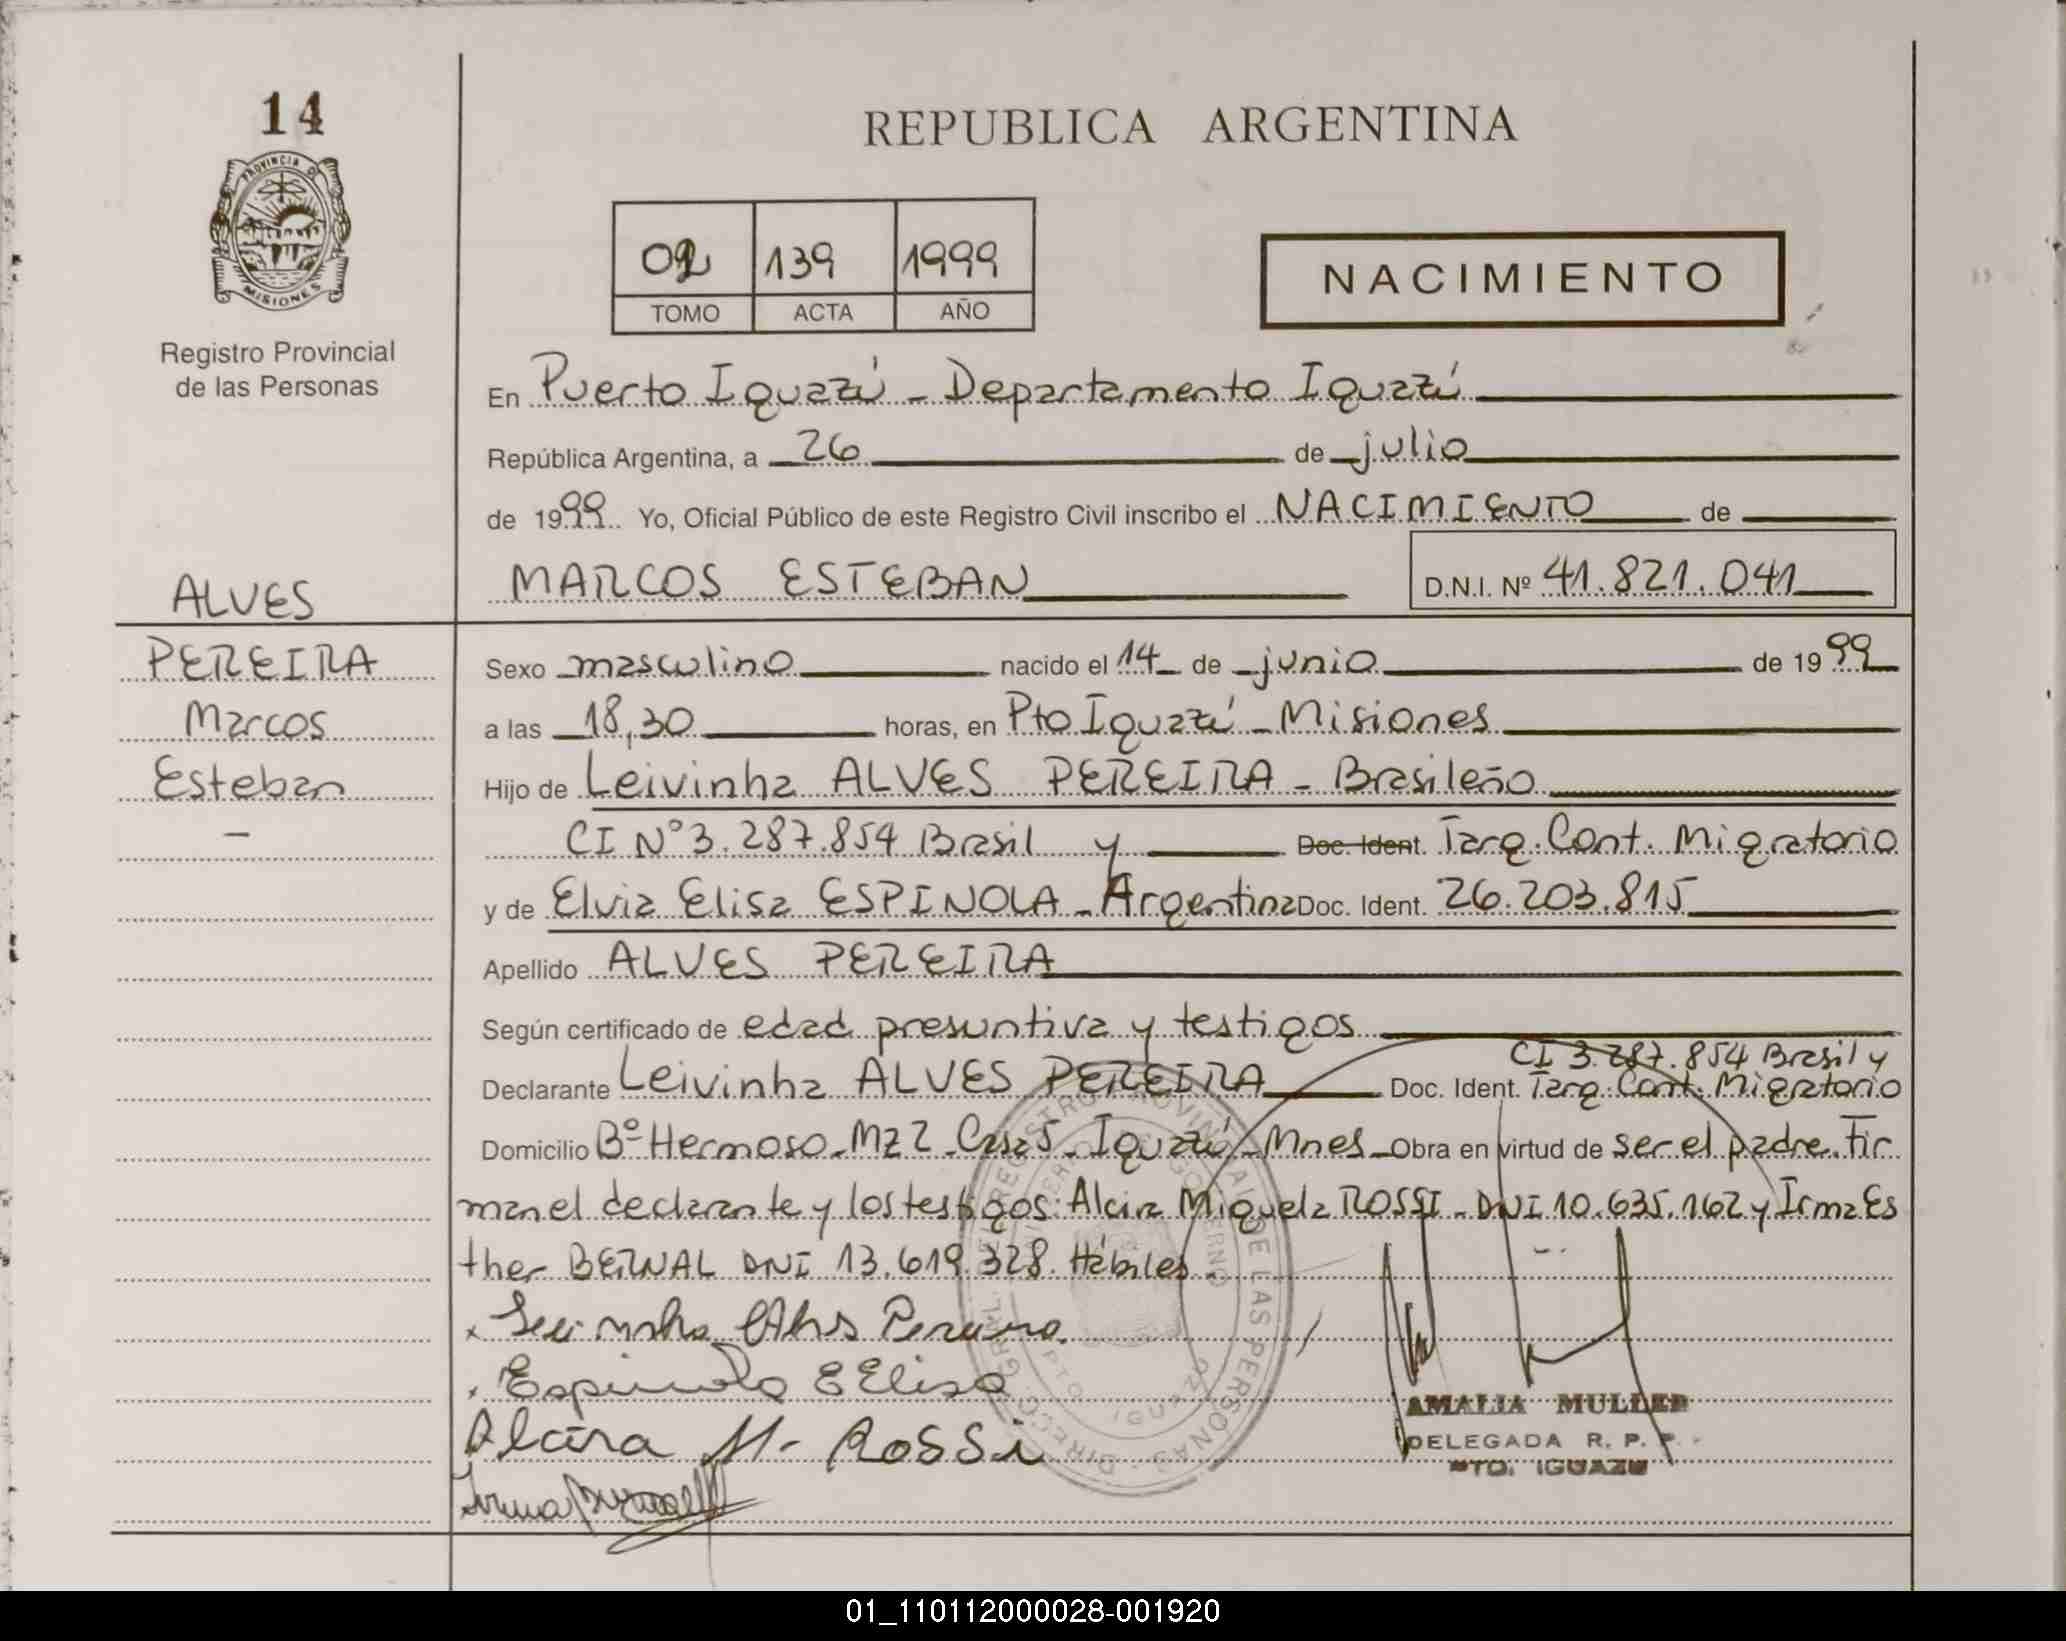 14
PROVINCIA DE
MISIONES
Registro Provincial
de las Personas
REPUBLICA ARGENTINA
02 139 1999
TOMO ACTA AÑO
NACIMIENTO
En Puerto Iguazú - Departamento Iguazú
República Argentina, a 26 de julio
de 1999 Yo, Oficial Público de este Registro Civil inscribo el NACIMIENTO de
MARCOS ESTEBAN D.N.I. Nº 41.821.041
ALVES
PEREIRA
Marcos
Esteban
-
Sexo masculino nacido el 14 de junio de 1999
a las 18,30 horas, en Pto Iguazú - Misiones
Hijo de Leivinha ALVES PEREIRA - Brasileño
CI Nº 3.287.854 Brasil y Doc. Ident. Tarq. Cont. Migratorio
y de Elvia Elisa ESPINOLA - Argentina Doc. Ident. 26.203.815
Apellido ALVES PEREIRA
Según certificado de edad presuntiva y testigos
CI 3.287.854 Brasil y
Declarante Leivinha ALVES PEREIRA Doc. Ident. Tarq. Cont. Migratorio
Domicilio Bº Hermoso - Mz 2 - Casa 5 - Iguazú - Mnes - Obra en virtud de ser el padre. Fir
man el declarante y los testigos: Alcira Miguela ROSSI - DNI 10.635.162 y Irma Es
ther BERNAL DNI 13.619.328. Hábiles -
Espinola E Elisa
Alcira M. Rossi
Irma
DIRECC. GRAL. DEL REGISTRO PROVINCIAL DE LAS PERSONAS
GOBIERNO
DPTO IGUAZU
AMALIA MULLER
DELEGADA R. P. P.
PTO. IGUAZU
01_110112000028-001920